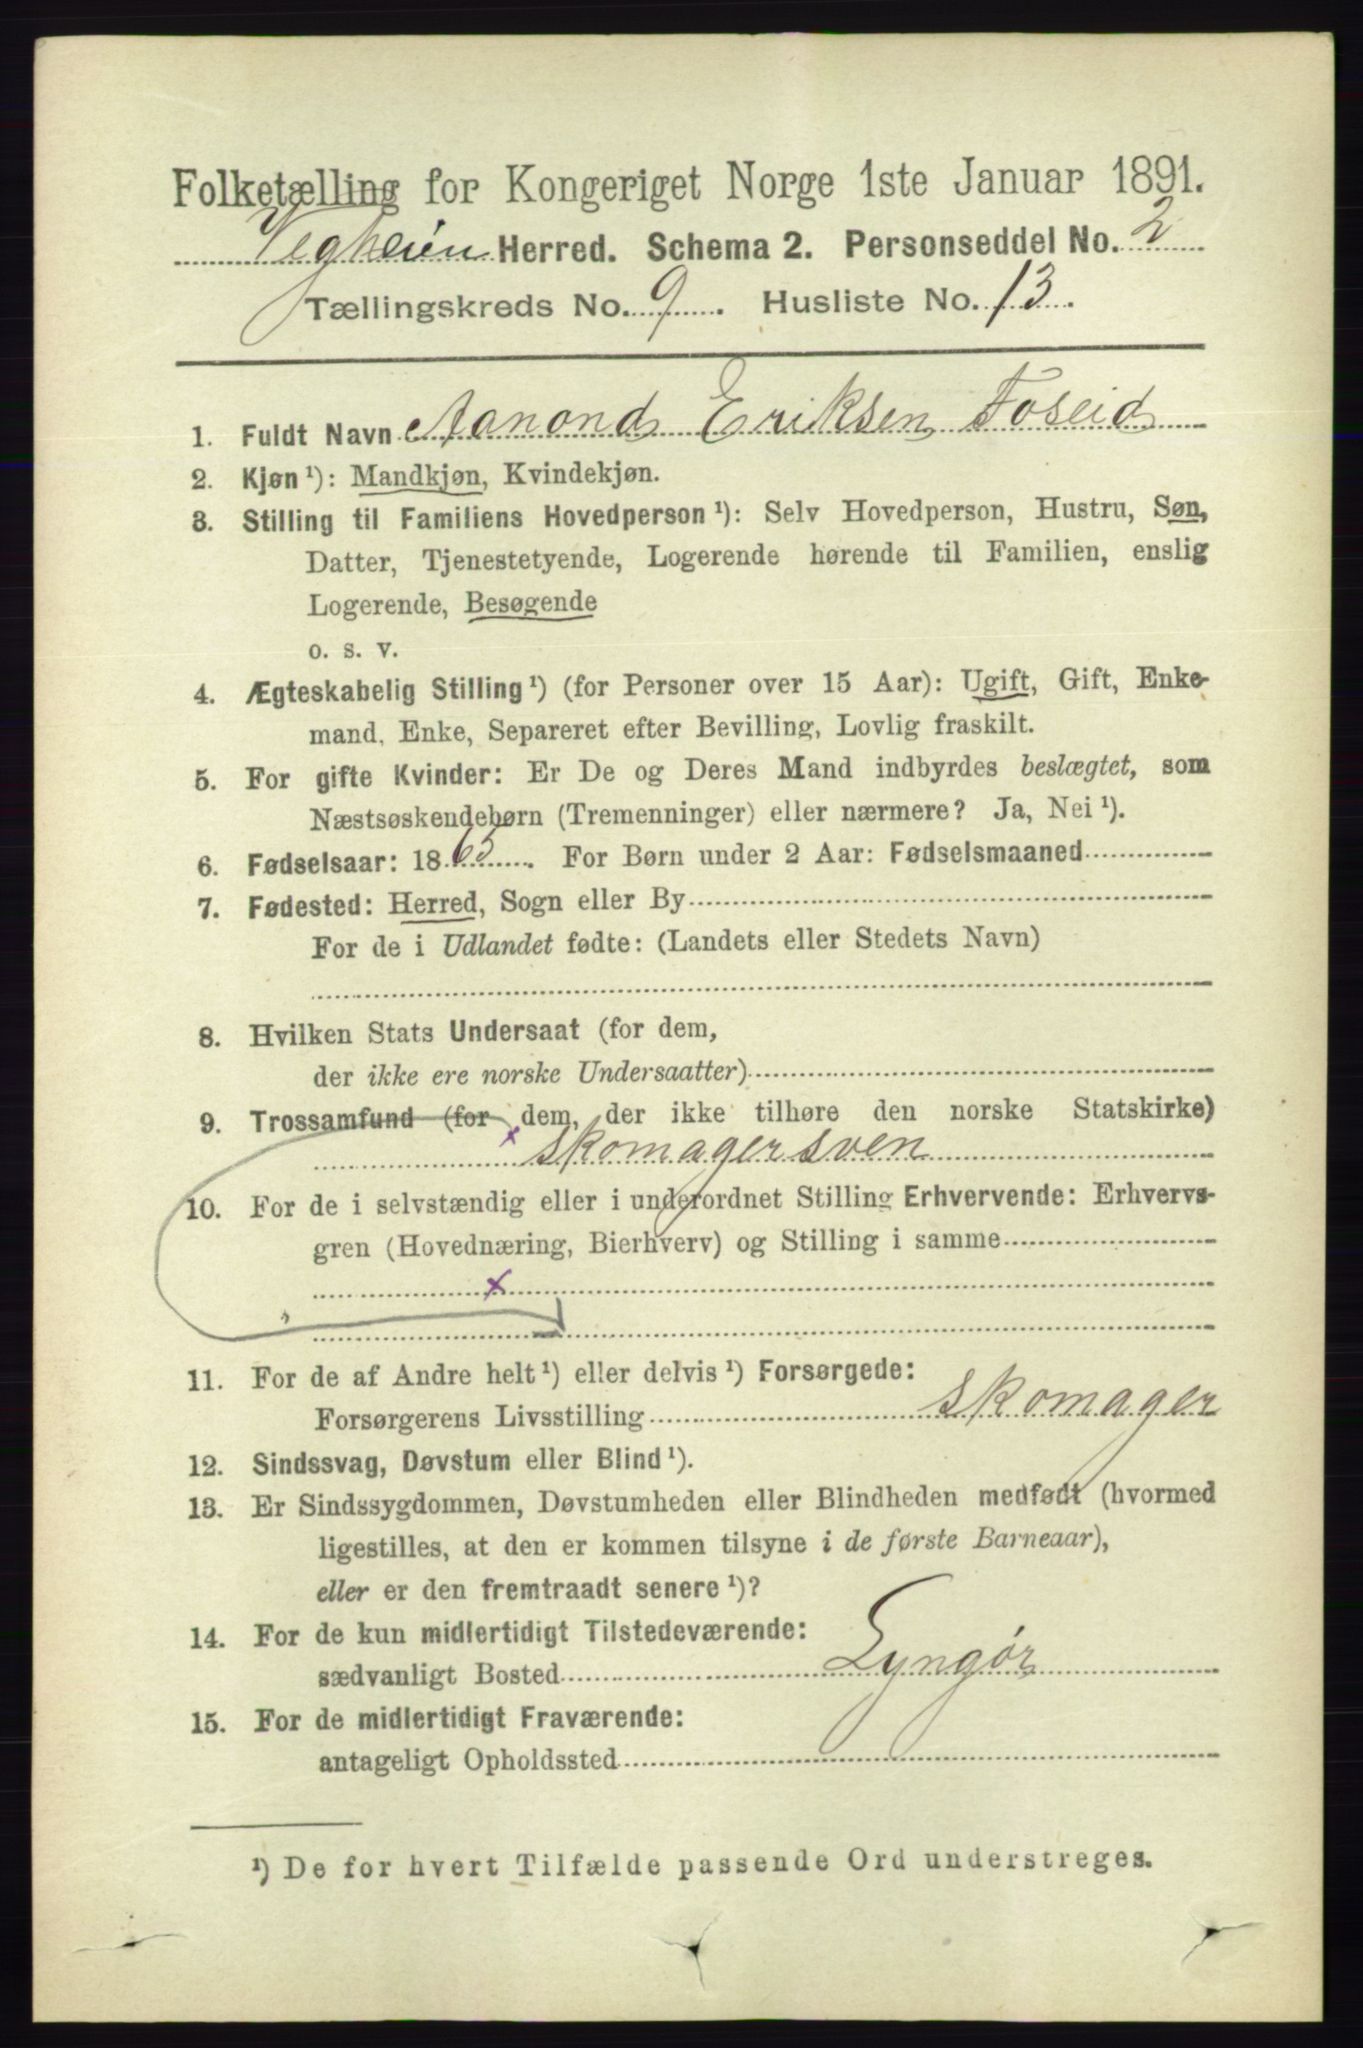 Folketælling for Kongeriget Norge 1ste Januar 1891.
Vegheien Herred. Schema 2. Personseddel No. 2
Tællingskreds No. 9. Husliste No. 13.
1. Fuldt Navn Aanond Eriksen Foseid
2. Kjøn ¹): Mandkjøn, Kvindekjøn.
3. Stilling til Familiens Hovedperson ¹): Selv Hovedperson, Hustru, Søn,
Datter, Tjenestetyende, Logerende hørende til Familien, enslig
Logerende, Besøgende
o. s. v.
4. Ægteskabelig Stilling ¹) (for Personer over 15 Aar): Ugift, Gift, Enke-
mand, Enke, Separeret efter Bevilling, Lovlig fraskilt.
5. For gifte Kvinder: Er De og Deres Mand indbyrdes beslægtet, som
Næstsøskendebørn (Tremenninger) eller nærmere? Ja, Nei ¹).
6. Fødselsaar: 1865. For Børn under 2 Aar: Fødselsmaaned
7. Fødested: Herred, Sogn eller By
For de i Udlandet fødte: (Landets eller Stedets Navn)
8. Hvilken Stats Undersaat (for dem,
der ikke ere norske Undersaatter)
9. Trossamfund (for dem, der ikke tilhøre den norske Statskirke)
x skomagersven
10. For de i selvstændig eller i underordnet Stilling Erhvervende: Erhvervs-
gren (Hovednæring, Bierhverv) og Stilling i samme
x
11. For de af Andre helt ¹) eller delvis ¹) Forsørgede:
Forsørgerens Livsstilling skomager
12. Sindssvag, Døvstum eller Blind ¹).
13. Er Sindssygdommen, Døvstumheden eller Blindheden medfødt (hvormed
ligestilles, at den er kommen tilsyne i de første Barneaar),
eller er den fremtraadt senere ¹)?
14. For de kun midlertidigt Tilstedeværende:
sædvanligt Bosted Lyngør
15. For de midlertidigt Fraværende:
antageligt Opholdssted
¹) De for hvert Tilfælde passende Ord understreges.